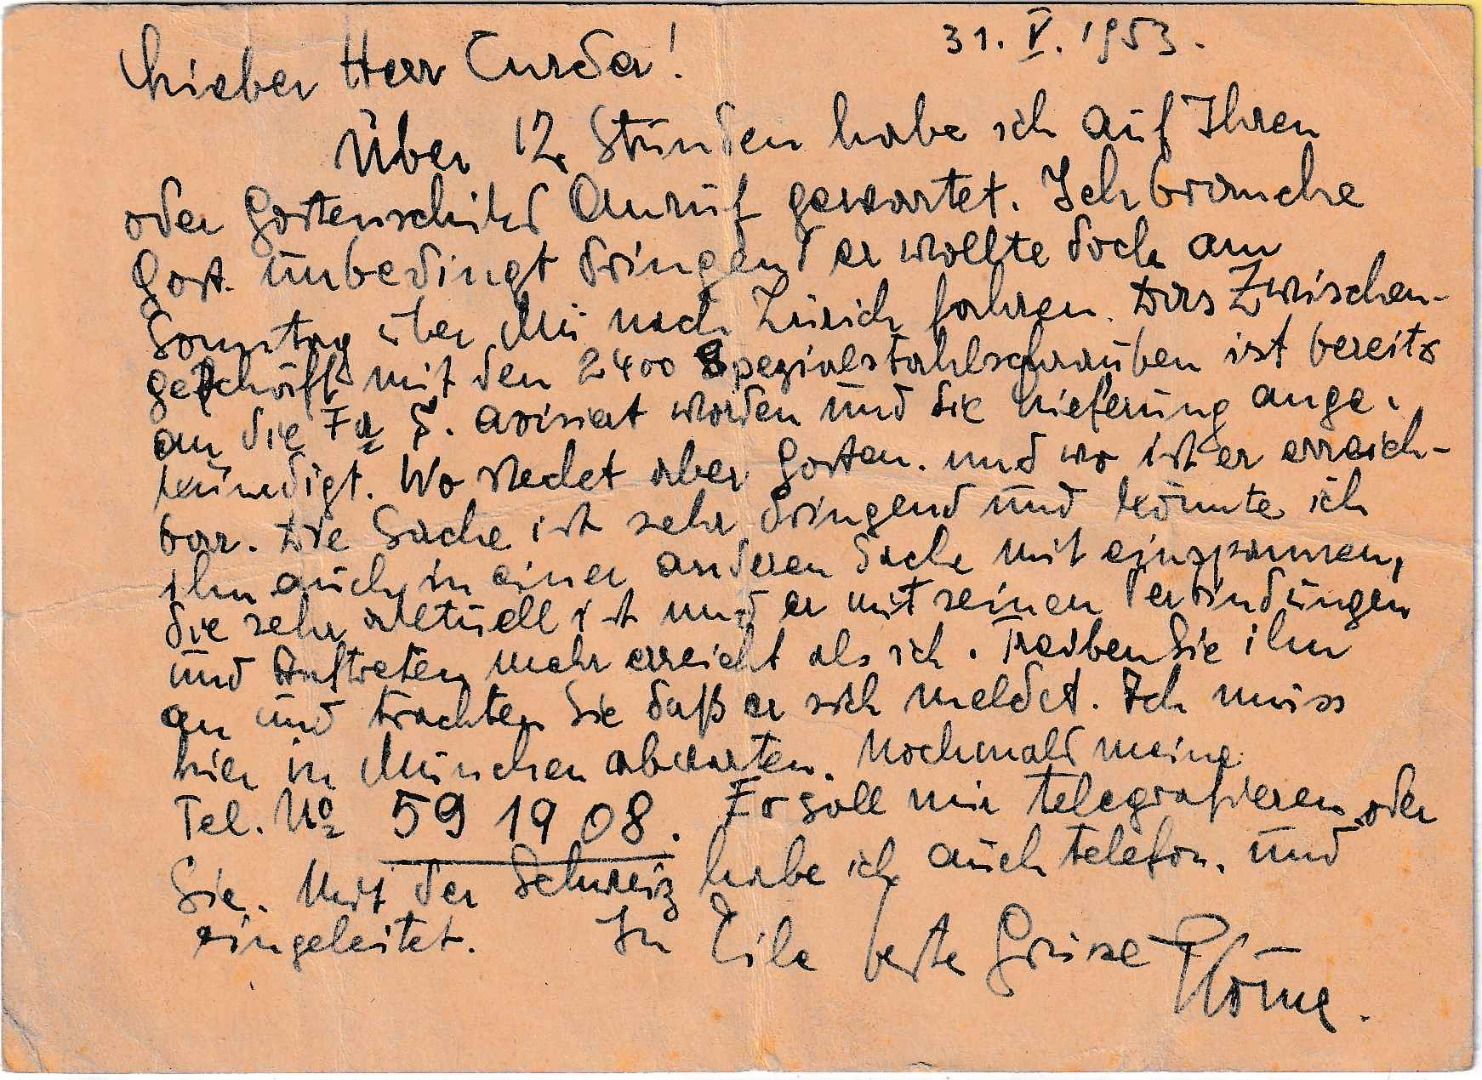 31. V. 1953.
Lieber Herr Curda!
Über 12 Stunden habe ich auf Ihren
oder Gortenschilds Anruf gewartet. Ich brauche
Gort. unbedingt dringend er wollte doch am
Sonntag über Mü nach Zürich fahren. Das Zwischen-
geschäft mit den 2400 Spezialstahlschrauben ist bereits
an die Fa S. avisiert worden und die Lieferung ange-
kündigt. Wo steckt aber Gorten. und wo ist er erreich-
bar. Die Sache ist sehr dringend und könnte ich
ihn auch in einer anderen Sache mit einspannen,
die sehr aktuell ist und er mit seinen Verbindungen
und Auftreten mehr erreicht als ich. Treiben Sie ihn
an und trachten Sie daß er sich meldet. Ich muss
hier in München abwarten. Nochmals meine
Tel. No 59 19 08. Er soll mir telegrafieren oder
Sie. Mit der Schweiz habe ich auch telefon. und
eingeleitet. In Eile beste Grüsse